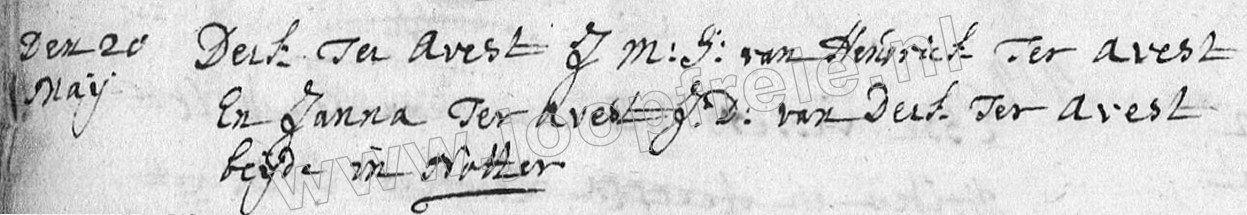 Den 20 Derk Ter Avest J M: S: van Henrick Ter Avest
Maij En Janna Ter Avest J: D: van Derk Ter Avest
beijde in Notter
www.loopfreie.nl